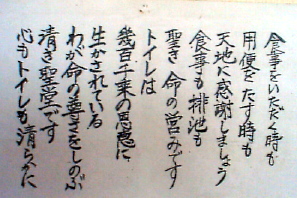 食事をいただく時も
用便をたす時も
天地に感謝しましょう
食事も排泄も
聖き命の営みです
トイレは
幾百千乗の恩恵に
生かされている
わが命の尊さをしのぶ
清き聖堂です
心もトイレも清らかに